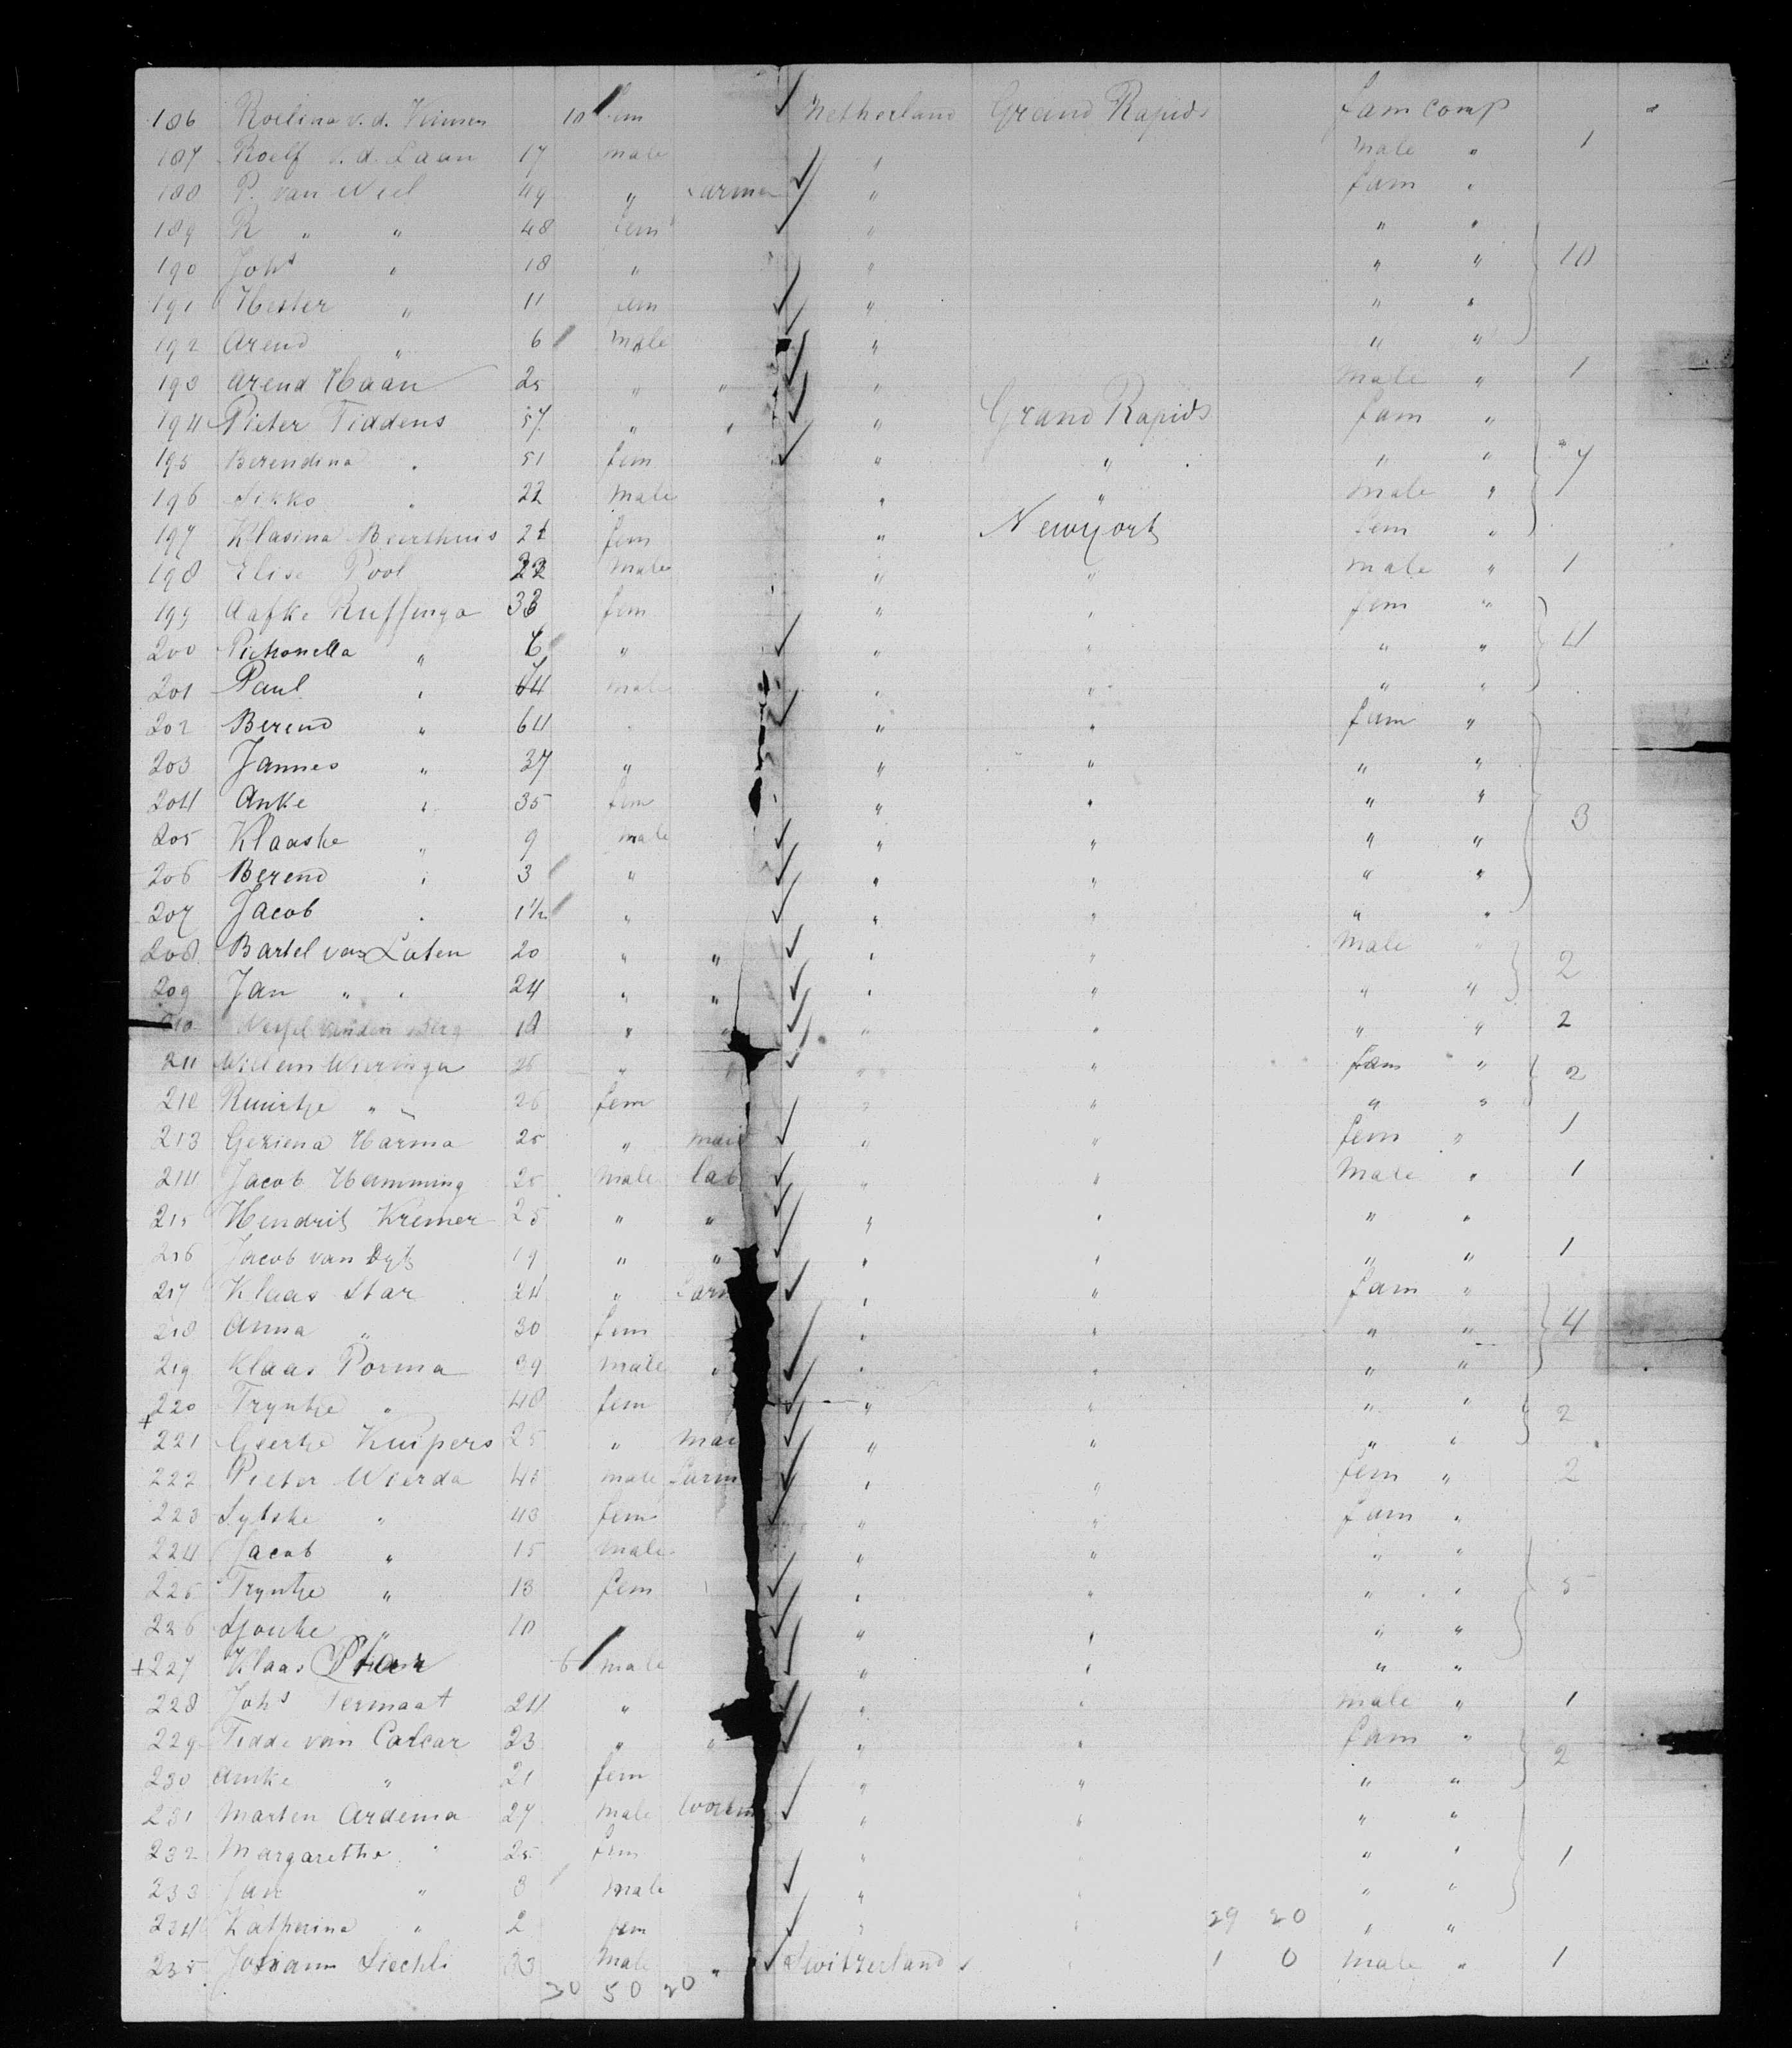 186 Roelina v. d. 10 fem Netherland Grand Rapids Fam comp
187 Roelf v. d. Laan 17 male " male " 1
188 P. van Niel 49 " Farmer " fam "
189 R " " 48 fem " " "
190 Johs " 18 " " " " 10
191 Hester " 11 fem " " "
192 Arend " 6 male " " "
193 Arend Haan 25 " " " male " 1
194 Pieter Tiddens 57 " " " Grand Rapids fam "
195 Berendina " 51 fem " " " " 7
196 Sikko " 22 male " " male "
197 Klasina Beerthuis 21 fem " Newyork fem "
198 Elise Pool 22 male " " male " 1
199 Aafke 33 fem " " fem "
200 Pietronella " 6 " " " " " 4
201 Paul " male " " " "
202 Berend " 64 " " " fam "
203 Jannes " 37 " " " " "
204 Anke " 35 fem " " " "
205 Klaaske " 9 male " " " " 3
206 Berend " 3 " " " " "
207 Jacob " 1½ " " " " "
208 Bartel van Laten 20 " " " " male "
209 Jan " " 24 " " " " " " 2
210 van den Berg 18 " " " " " " 2
211 Willem Wieringa 26 " " " " fam "
212 " " 26 fem " " " " 2
213 Geziena Harma 25 " maid " " fem " 1
214 Jacob Hamming 25 male lab " " male " 1
215 Hendrik Kremer 25 " " " " " "
216 Jacob van Dyk 19 " " " " " " 1
217 Klaas Star 24 " Farm " " fam "
218 Anna " 30 fem " " " " 4
219 Klaas Porma 39 male " " " " "
+ 220 Tryntje " 48 fem " " " "
221 Geertje Kuipers 25 " mai " " " " 2
222 Pieter Wierda 45 male Farm " " fem " 2
223 Sytske " 43 fem " " fam "
224 Jacob " 15 male " " " "
225 Tryntje " 13 fem " " " " 5
226 Sjouke " 10 " " " " "
+ 227 Klaas Star 6 male " " " "
228 Johs Termaat 24 " " " male " 1
229 Tidde van Calcar 23 " " " " fam "
230 Anke " 21 fem " " " " 2
231 Marten Ardema 27 male " " " "
232 Margaretha " 25 fem " " " " 1
233 Jan " 3 male " " " "
234 Katherina " 2 fem " " 29 20 " "
235 Johann Liechti 23 male " Switzerland " 1 0 male " 1
30 50 20